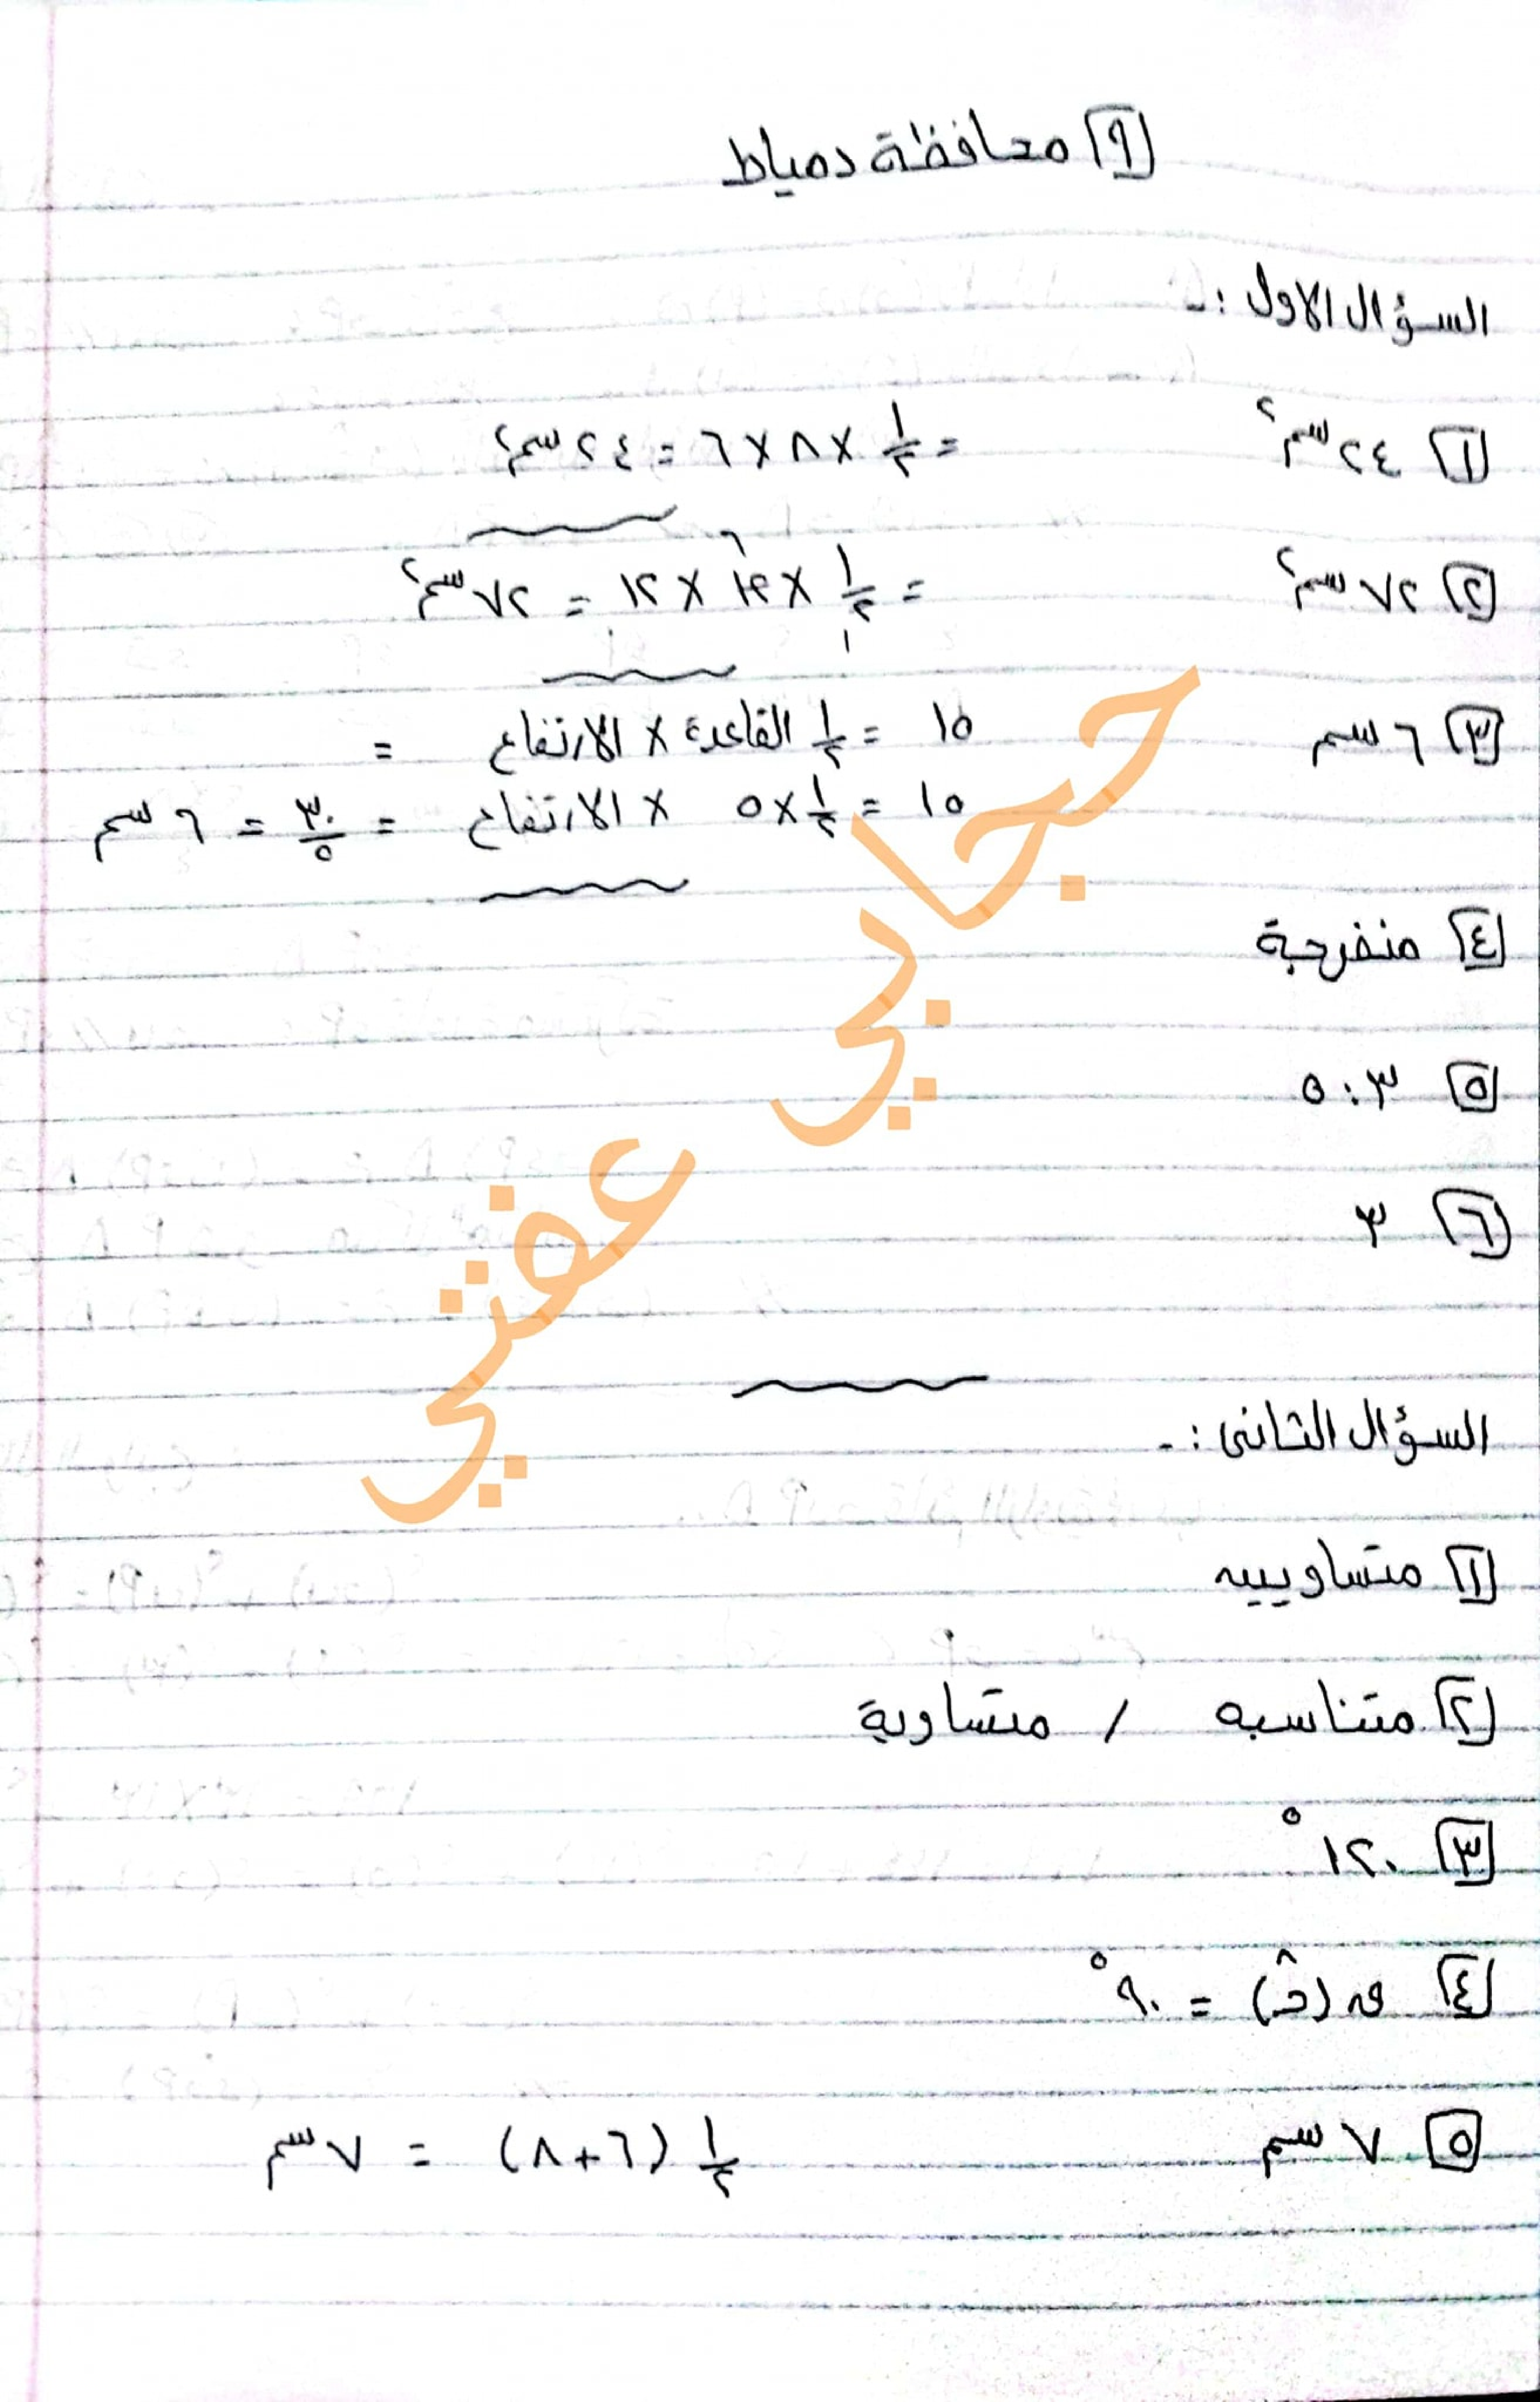 ٩ محافظة دمياط
السؤال الاول :-
١ ٢٤ سم٢ = ١/٢ × ٨ × ٦ = ٢٤ سم٢
٢ ٧٢ سم٢ = ١/٢ × ١٢ × ١٢ = ٧٢ سم٢
٣ ٦ سم ١٥ = ١/٢ القاعدة × الارتفاع =
١٥ = ١/٢ × ٥ × الارتفاع = ٣٠/٥ = ٦ سم
٤ منفرجة
٥ ٣ : ٥
٦ ٣
حجابي عفتي
السؤال الثانى :-
١ متساويين
٢ متناسبه / متساوية
٣ ١٢٠°
٤ ق (حـ^) = ٩٠°
٥ ٧ سم ١/٢ (٦+٨) = ٧ سم